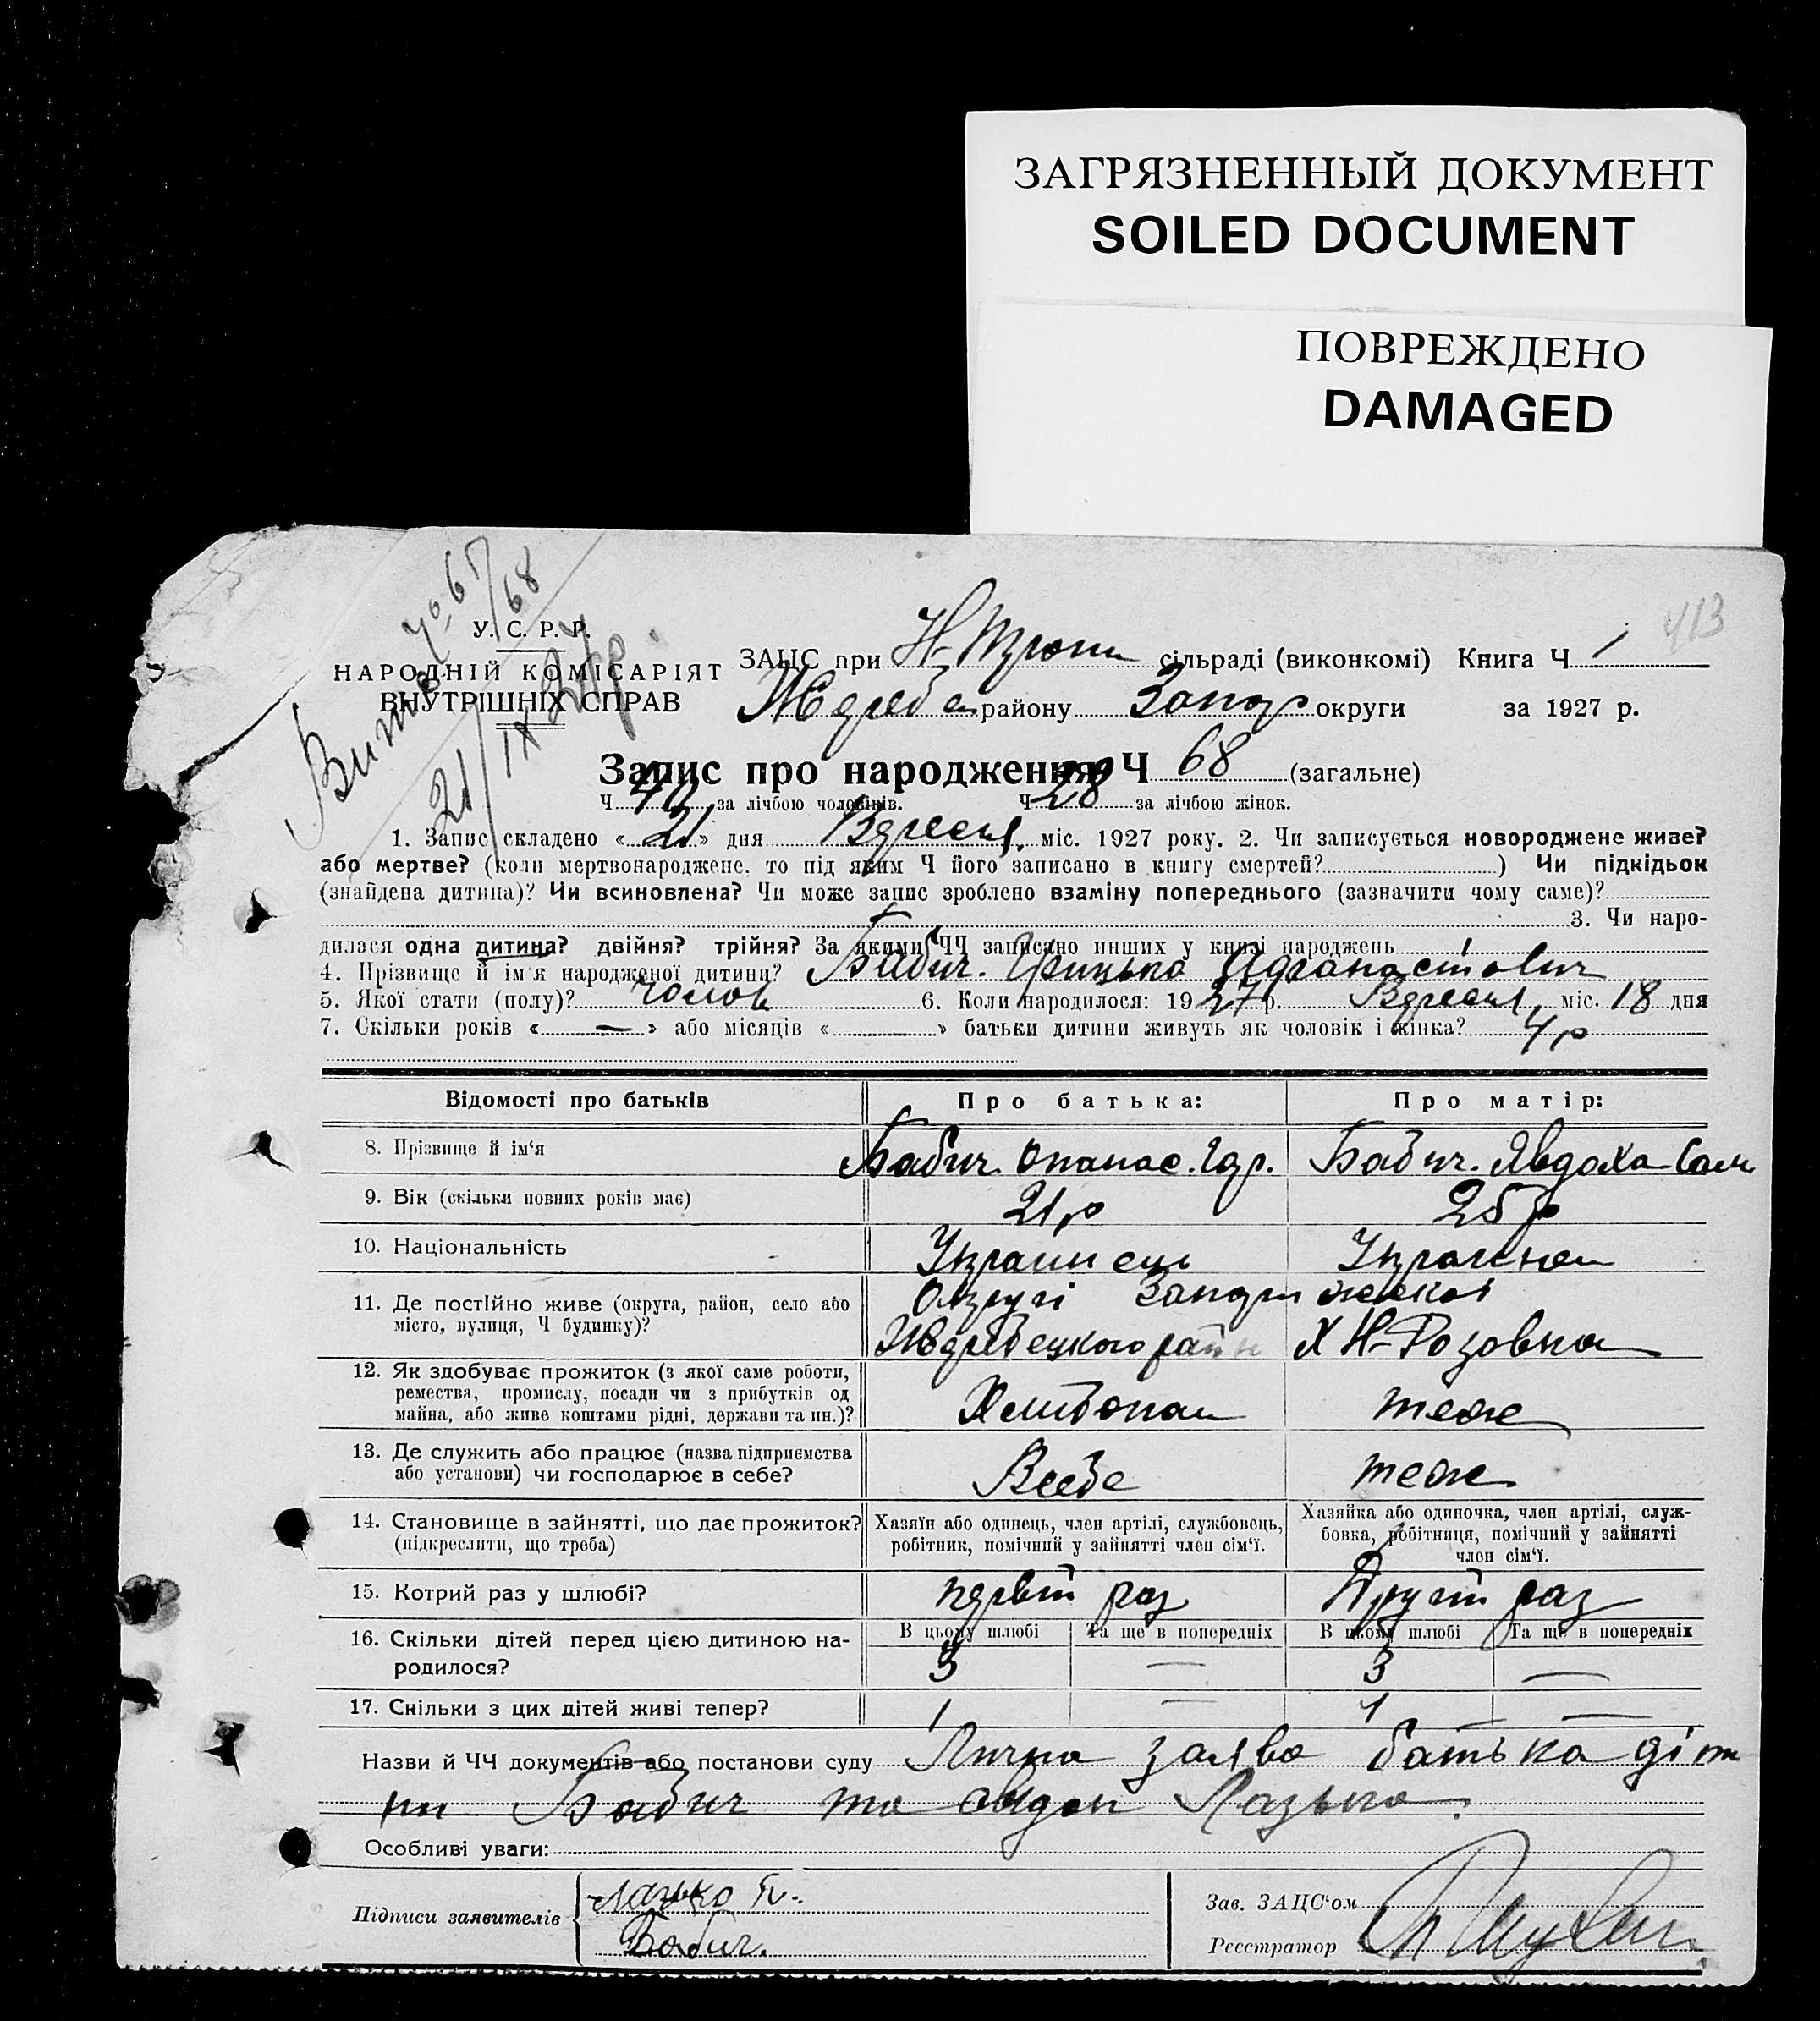 ЗАГРЯЗНЕННЫЙ ДОКУМЕНТ
SOILED DOCUMENT
ПОВРЕЖДЕНО
DAMAGED
413
У. С. Р. Р.
НАРОДНІЙ КОМІСАРІЯТ
ВНУТРІШНІХ СПРАВ
68
21/IX 27р.
ЗАЦС при Н- сільраді (виконкомі) Книга Ч 1
району Запор округи за 1927 р.
Запис про народження Ч 68 (загальне)
Ч 40 за лічбою чоловіків. Ч 28 за лічбою жінок.
1. Запис складено « 21 » дня Вересня міс. 1927 року. 2. Чи записується новороджене живе?
або мертве? (коли мертвонароджене, то під яким Ч його записано в книгу смертей? ) Чи підкідьок
(знайдена дитина)? Чи всиновлена? Чи може запис зроблено взаміну попереднього (зазначити чому саме)?
3. Чи наро-
дилася одна дитина? двійня? трійня? За якими ЧЧ записано инших у книзі народжень
4. Прізвище й ім'я народженої дитини? Бабич. Грицько Афанастович
5. Якої стати (полу)? чолов 6. Коли народилося: 1927 р. Вересня, міс. 18 дня
7. Скільки років « — » або місяців « » батьки дитини живуть як чоловік і жінка? 4 р
Відомості про батьків Про батька: Про матір:
8. Прізвище й ім'я Бабич. Опанас. Гр. Бабич. Явдоха Сам
9. Вік (скільки повних років має) 21 р 25 р
10. Національність Українець Українка
11. Де постійно живе (округа, район, село або Округі Запоріжської
місто, вулиця, Ч будинку)? району Х Н-Розовка
12. Як здобуває прожиток (з якої саме роботи,
ремества, промислу, посади чи з прибутків од
майна, або живе коштами рідні, держави та ин.)? Хлибопаш теж
13. Де служить або працює (назва підприємства
або установи) чи господарює в себе? Всебе теж
14. Становище в зайнятті, що дає прожиток? Хазяїн або одинець, член артілі, службовець, Хазяйка або одиночка, член артілі, служ-
(підкреслити, що треба) робітник, помічний у зайнятті член сім'ї. бовка, робітниця, помічний у зайнятті
член сім'ї.
15. Котрий раз у шлюбі? первий раз Другий раз
16. Скільки дітей перед цією дитиною на- В цьому шлюбі Та ще в попередніх В цьому шлюбі Та ще в попередніх
родилося? 3 — 3 —
17. Скільки з цих дітей живі тепер? 1 — 1 —
Назви й ЧЧ документів або постанови суду Лична заява батька діт
ни Бабич та свідок Лазько.
Особливі уваги:
Підписи заявителів Лазько
Бабич.
Зав. ЗАЦС'ом
Реєстратор